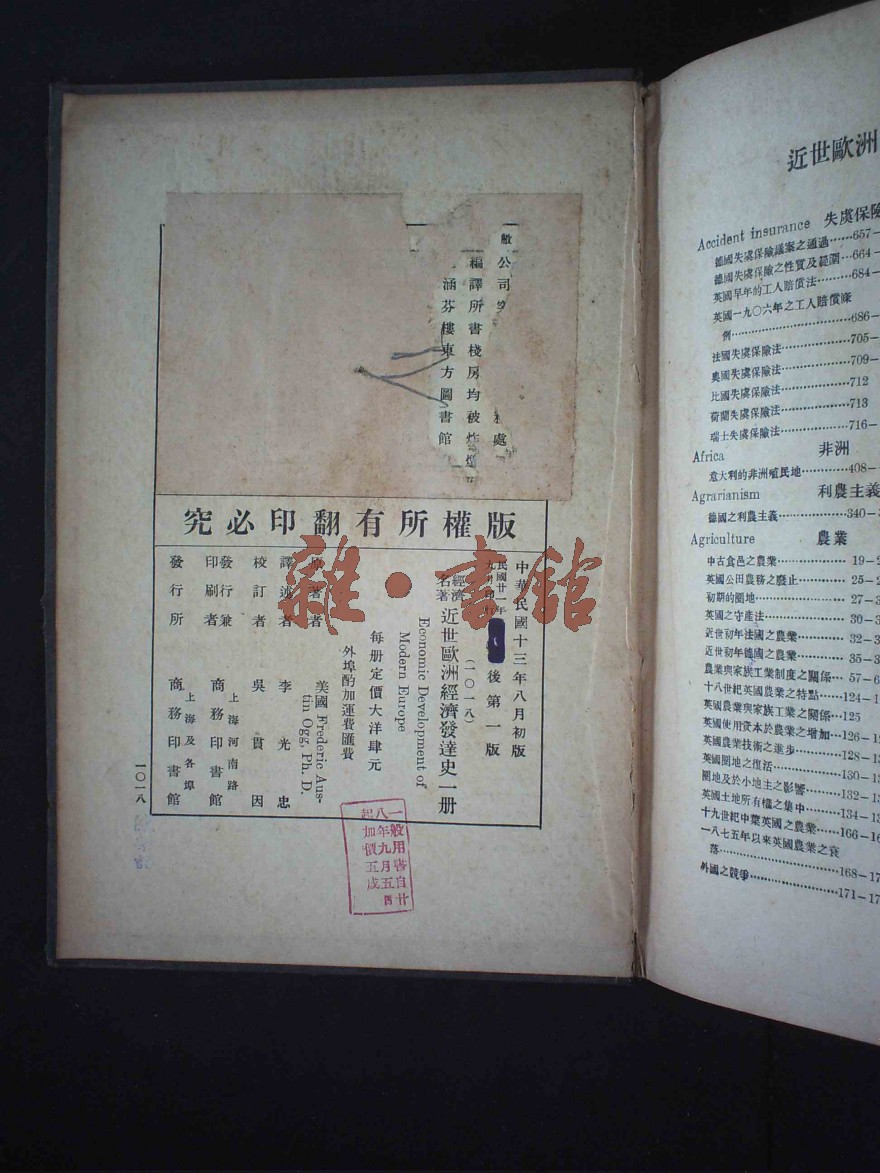 敝
公司
處
編譯所書棧房均被炸燬
涵芬樓東方圖書館
版權所有翻印必究
中華民國十三年八月初版
民國廿一年
後第一版
(一〇一八)
經濟名著 近世歐洲經濟發達史一册
Economic Development of
Modern Europe
每册定價大洋肆元
外埠酌加運費匯費
原著者 美國 Frederic Aus-
tin Ogg, Ph. D.
譯述者 李光忠
校訂者 吳貫因
發行兼印刷者 上海河南路 商務印書館
發行所 上海及各埠 商務印書館
一〇一八
一般用書自廿
八年九月五日
起加價五成
雜·書館
近世歐洲
Accident insurance 失虞保險
德國失虞保險議案之通過……657-
德國失虞保險之性質及範圍…664-
英國早年的工人賠償法………684-
英國一九〇六年之工人賠償條
例……………………686-
法國失虞保險法……………705-
奧國失虞保險法……………709-
比國失虞保險法……………712
荷蘭失虞保險法……………713
瑞士失虞保險法……………716-
Africa 非洲
意大利的非洲殖民地…………408-
Agrarianism 利農主義
德國之利農主義………………340-3
Agriculture 農業
中古食邑之農業………………19-2
英國公田農務之廢止…………25-2
初期的圈地……………………27-3
英國之守產法…………………30-3
近世初年法國之農業…………32-3
近世初年德國之農業…………35-3
農業與家族工業制度之關係…57-6
十八世紀英國農業之特點……124-1
英國農業與家族工業之關係…125
英國使用資本於農業之增加…126-12
英國農業技術之進步…………128-13
英國圈地之復活………………130-13
圈地及於小地主之影響………132-13
英國土地所有權之集中………134-13
十九世紀中葉英國之農業……166-16
一八七五年以來英國農業之衰
落……………………168-17
外國之競爭……………………171-17